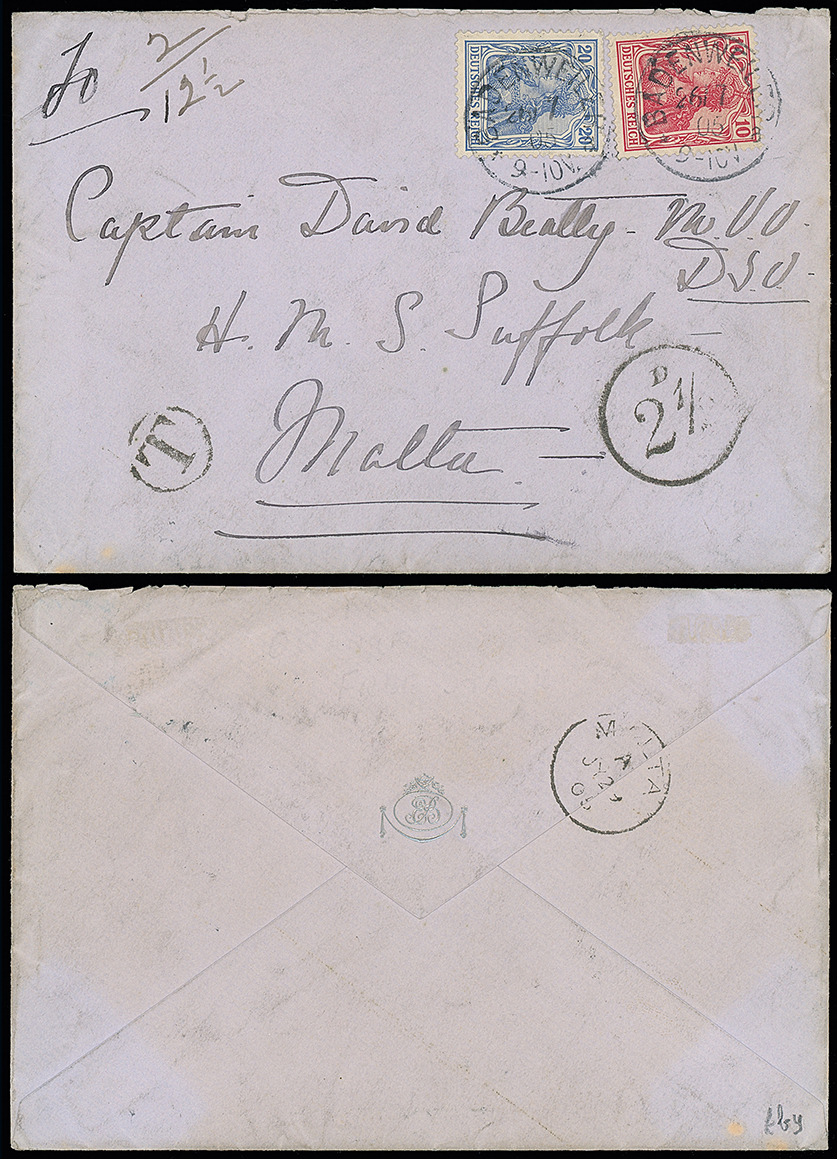 To 2/12½
20 20 DEUTSCHES REICH
10 10 DEUTSCHES REICH
BADENWEILER
26 7
05
9-10V.
BADENWEILER
26 7
05
9-10V.
Captain David Beatty - M.V.O.
D.S.O.
H. M. S. Suffolk -
Malta -
T
D
2 1/2
MALTA
EB